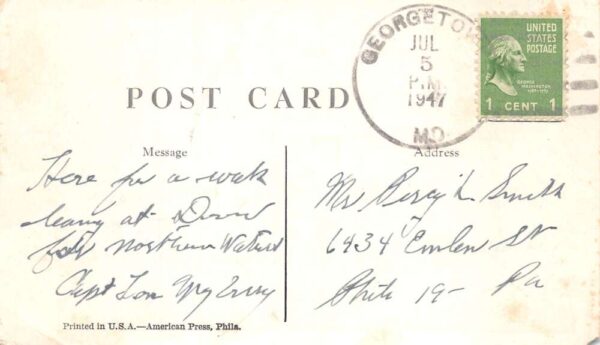 GEORGETOWN
JUL
5
P.M.
1947
MD.
UNITED
STATES
POSTAGE
GEORGE
WASHINGTON
1 CENT 1
POST CARD
Message
Address
Here for a week
leaving at Dawn
for Northern Waters
Capt Lon
Mr Percy L. Smith
6434 Emlen St
Phila 19- Pa
Printed in U.S.A.—American Press, Phila.